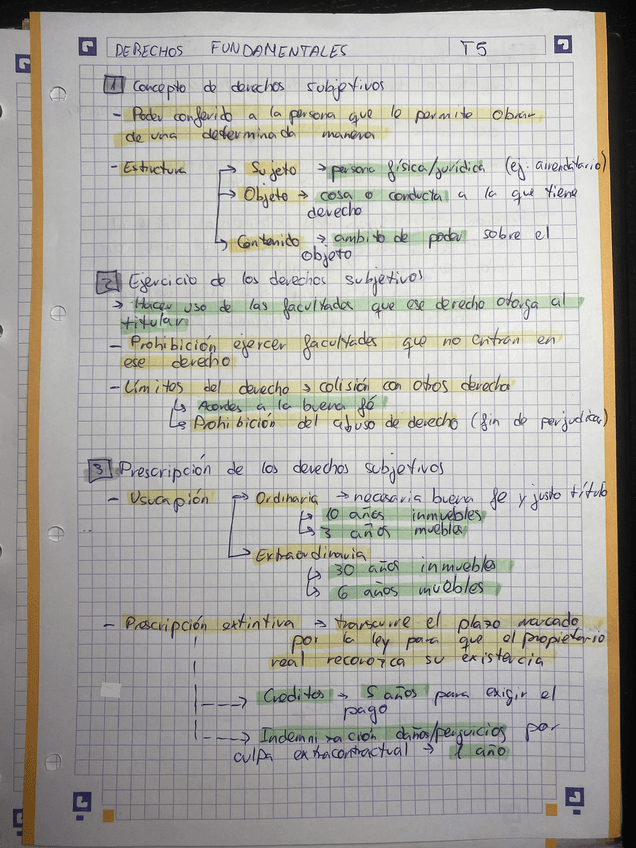 DERECHOS FUNDAMENTALES T5
1 Concepto de derechos subjetivos
- Poder conferido a la persona que le permite obrar
de una determinada manera
- Estructura → Sujeto → persona física/jurídica (ej: arrendatario)
→ Objeto → cosa o conducta a la que tiene
derecho
→ Contenido → ambito de poder sobre el
objeto
2 Ejercicio de los derechos subjetivos
→ Hacer uso de las facultades que ese derecho otorga al
titular
- Prohibición ejercer facultades que no entran en
ese derecho
- Límites del derecho → colisión con otros derecho
↳ Acordes a la buena fé
↳ Prohibición del abuso de derecho (fin de perjudicar)
3 Prescripción de los derechos subjetivos
- Usucapión → Ordinaria → necesaria buena fe y justo título
↳ 10 años inmuebles
↳ 3 años muebles
→ Extraordinaria
↳ 30 años inmuebles
↳ 6 años muebles
- Prescripción extintiva → transcurre el plazo marcado
por la ley para que el propietario
real reconozca su existencia
---> Creditos → 5 años para exigir el
pago
---> Indemnización daños/perjuicios por
culpa extracontractual → 1 año